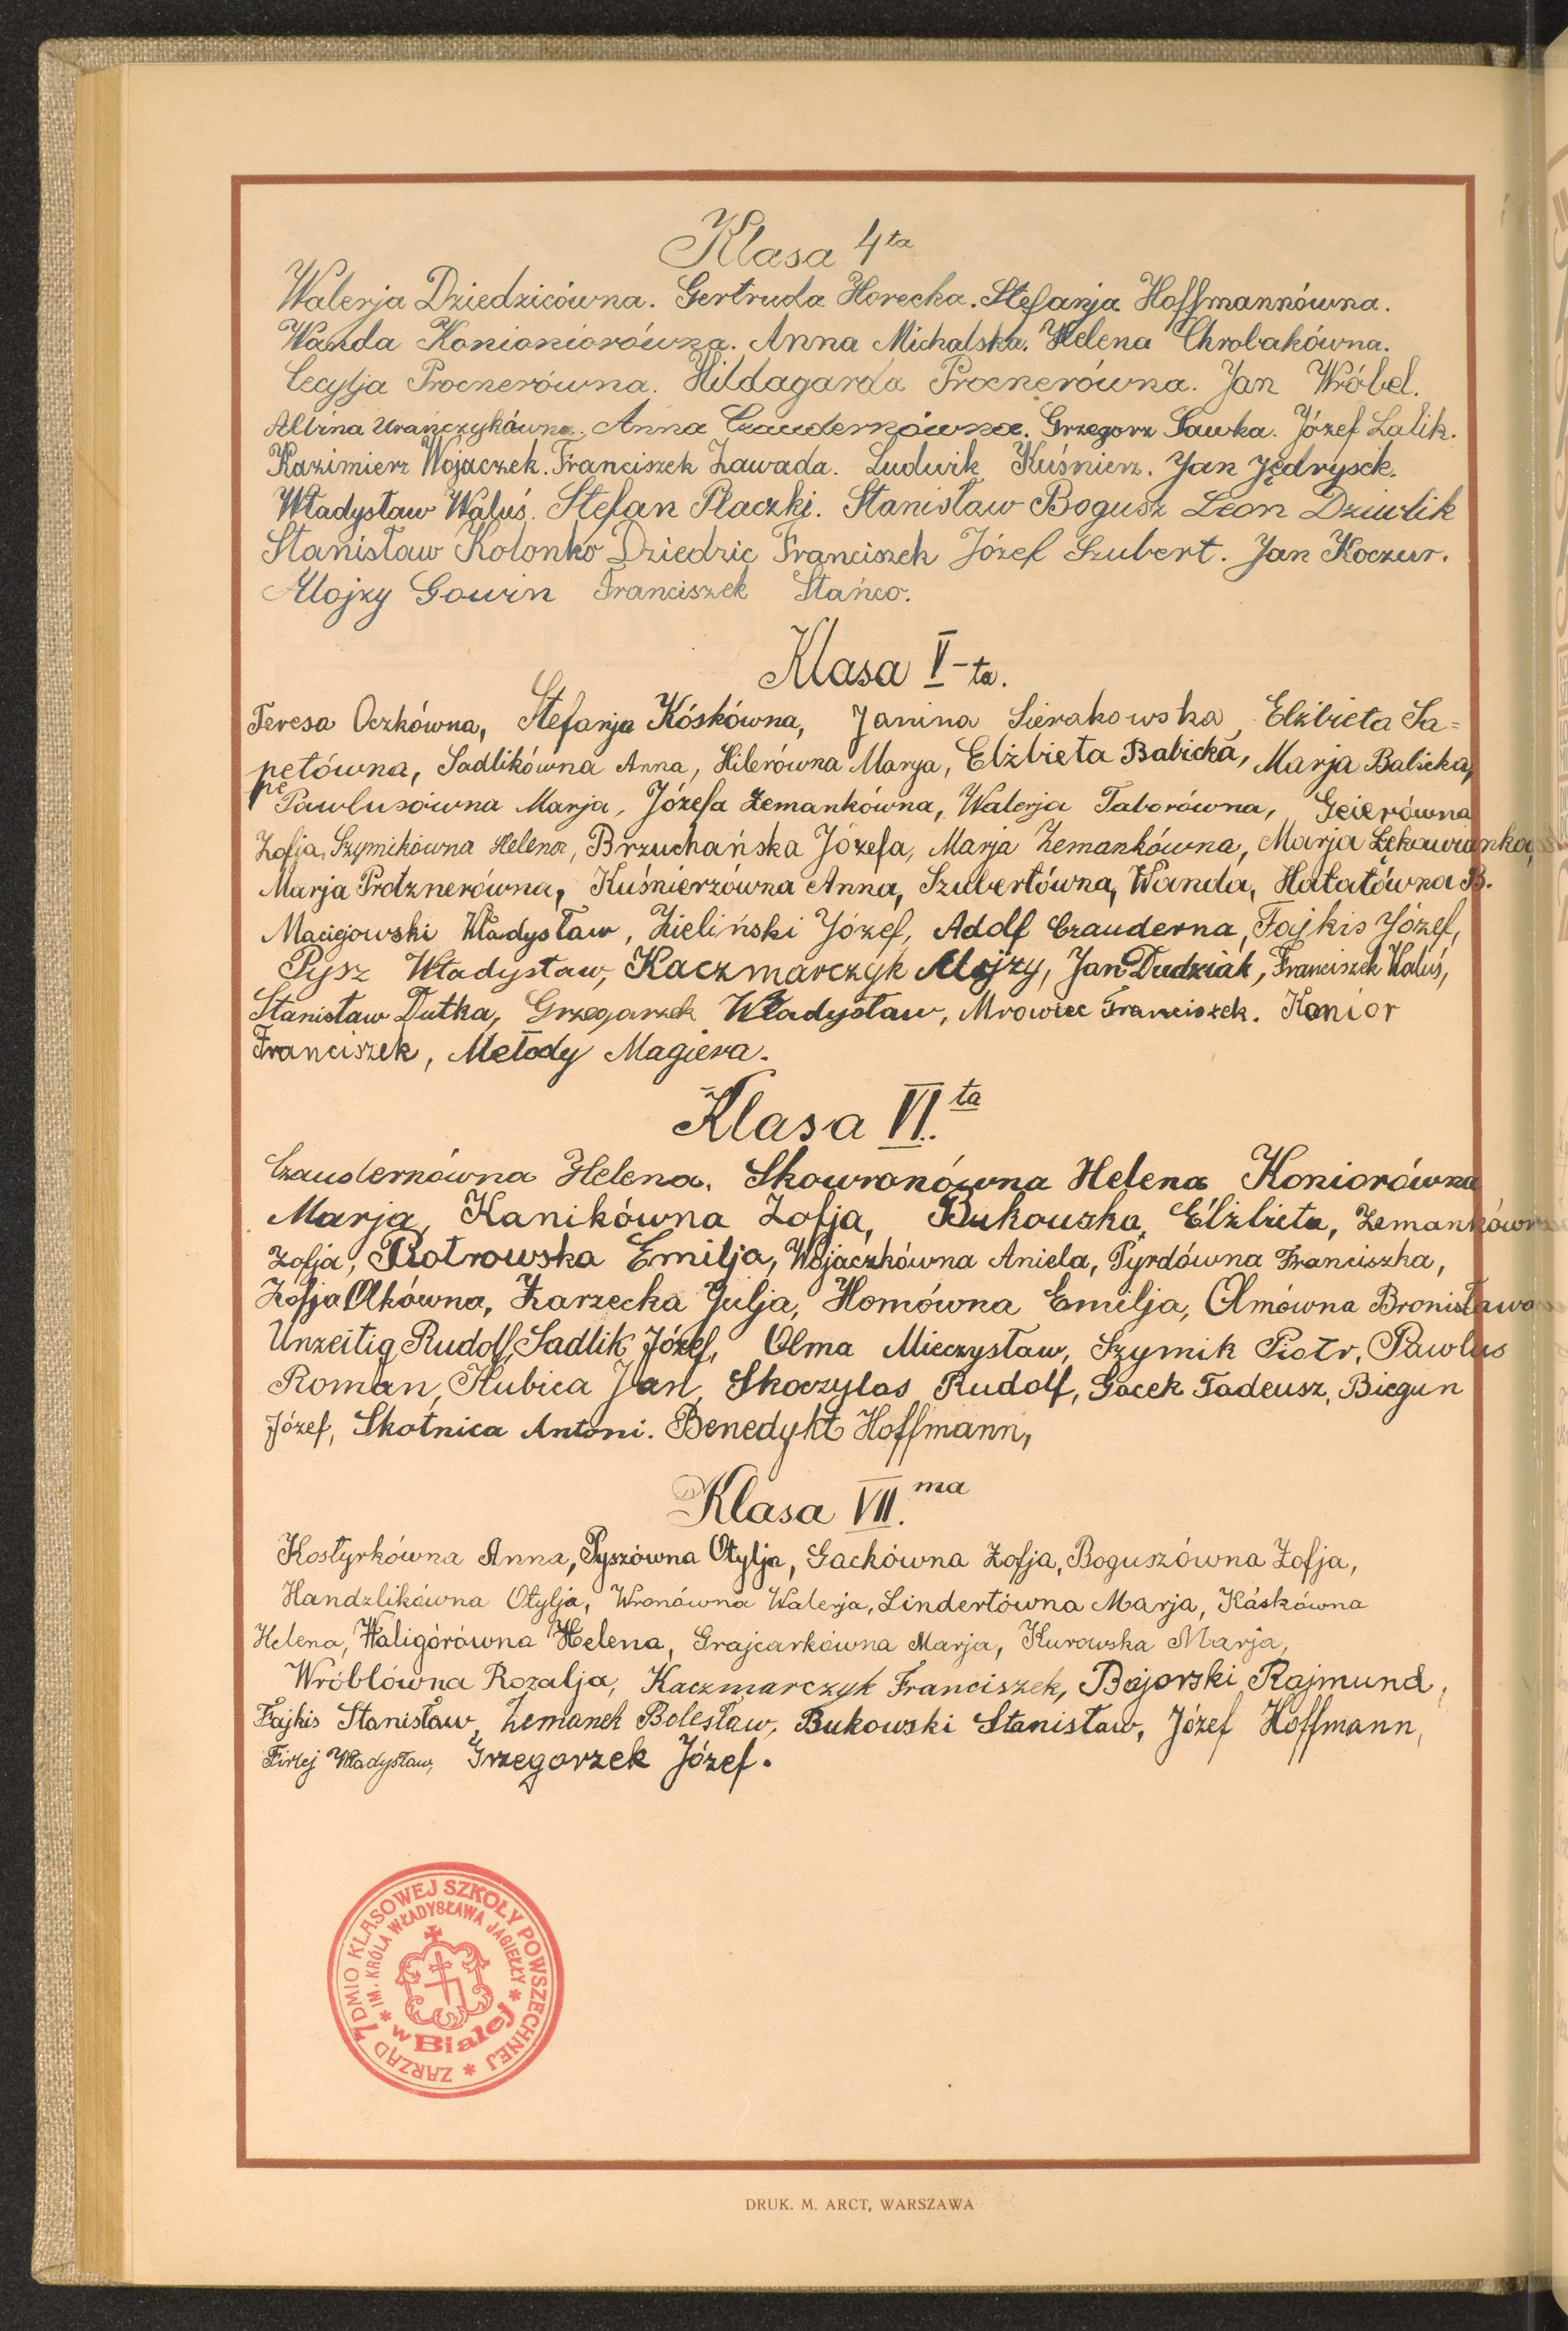 Klasa 4ta
Walerja Dziedzicówna. Gertruda Horecka. Stefanja Hoffmannówna.
Wanda Konioniorówna. Anna Michalska. Helena Chrobakówna.
Cecylja Procnerówna. Hildagarda Procnerówna. Jan Wróbel.
Albina Urańczykówna. Anna Czaudernówna. Grzegorz Sawka. Józef Lalik.
Kazimierz Wojaczek. Franciszek Zawada. Ludwik Kuśnierz. Jan Jędrysek.
Władysław Waluś. Stefan Płaczki. Stanisław Bogusz Leon Dziwlik
Stanisław Kolonko Dziedzic Franciszek Józef Szubert. Jan Koczur.
Alojzy Gowin Franciszek Stańco.
Klasa V-ta.
Teresa Oczkówna, Stefanja Kóskówna, Janina Sierakowska, Elżbieta Sa=
petówna, Sadlikówna Anna, Hilerówna Marya, Elżbieta Babicka, Marja Balicka,
Pawlusówna Marja, Józefa Zemankówna, Walerja Taborówna, Geierówna
Zofja, Szymikówna Helena, Brzuchańska Józefa, Marja Zemankówna, Marja Łękawianka,
Marja Protznerówna, Kuśnierzówna Anna, Szubertówna, Wanda, Hałatówna B.
Maciejowski Władysław, Zieliński Józef, Adolf Czauderna, Fajkis Józef,
Pysz Władysław, Kaczmarczyk Alojzy, Jan Dudziak, Franciszek Waluś,
Stanisław Dutka, Grzegarzek Władysław, Mrowiec Franciszek. Konior
Franciszek, Metody Magiera.
Klasa VI.ta
Czaudernówna Helena, Skowronówna Helena Koniorówna
Marja, Kanikówna Zofja, Bukowska Elżbieta, Zemankówna
Zofja, Piotrowska Emilja, Wojaczkówna Aniela, Pyrdówna Franciszka,
Zofja Olkówna, Zarzecka Julja, Homówna Emilja, Olmówna Bronisława
Unzeitig Rudolf, Sadlik Józef, Olma Mieczysław, Szymik Piotr, Pawlus
Roman, Kubica Jan, Skoczylas Rudolf, Gacek Tadeusz, Biegun
Józef, Skotnica Antoni. Benedykt Hoffmann,
Klasa VII.ma
Kostyrkówna Anna, Pyszówna Otylja, Gackówna Zofja, Boguszówna Zofja,
Handzlikówna Otylja, Wronówna Walerja, Lindertówna Marja, Káskówna
Helena, Waligórówna Helena, Grajcarkówna Marja, Kurowska Marja,
Wróblówna Rozalja, Kaczmarczyk Franciszek, Bajorski Rajmund,
Fajkis Stanisław, Zemanek Bolesław, Bukowski Stanisław, Józef Hoffmann,
Firlej Władysław, Grzegorzek Józef.
ZARZĄD 7DMIO KLASOWEJ SZKOŁY POWSZECHNEJ
IM. KRÓLA WŁADYSŁAWA JAGIEŁŁY
w Białej
DRUK. M. ARCT, WARSZAWA